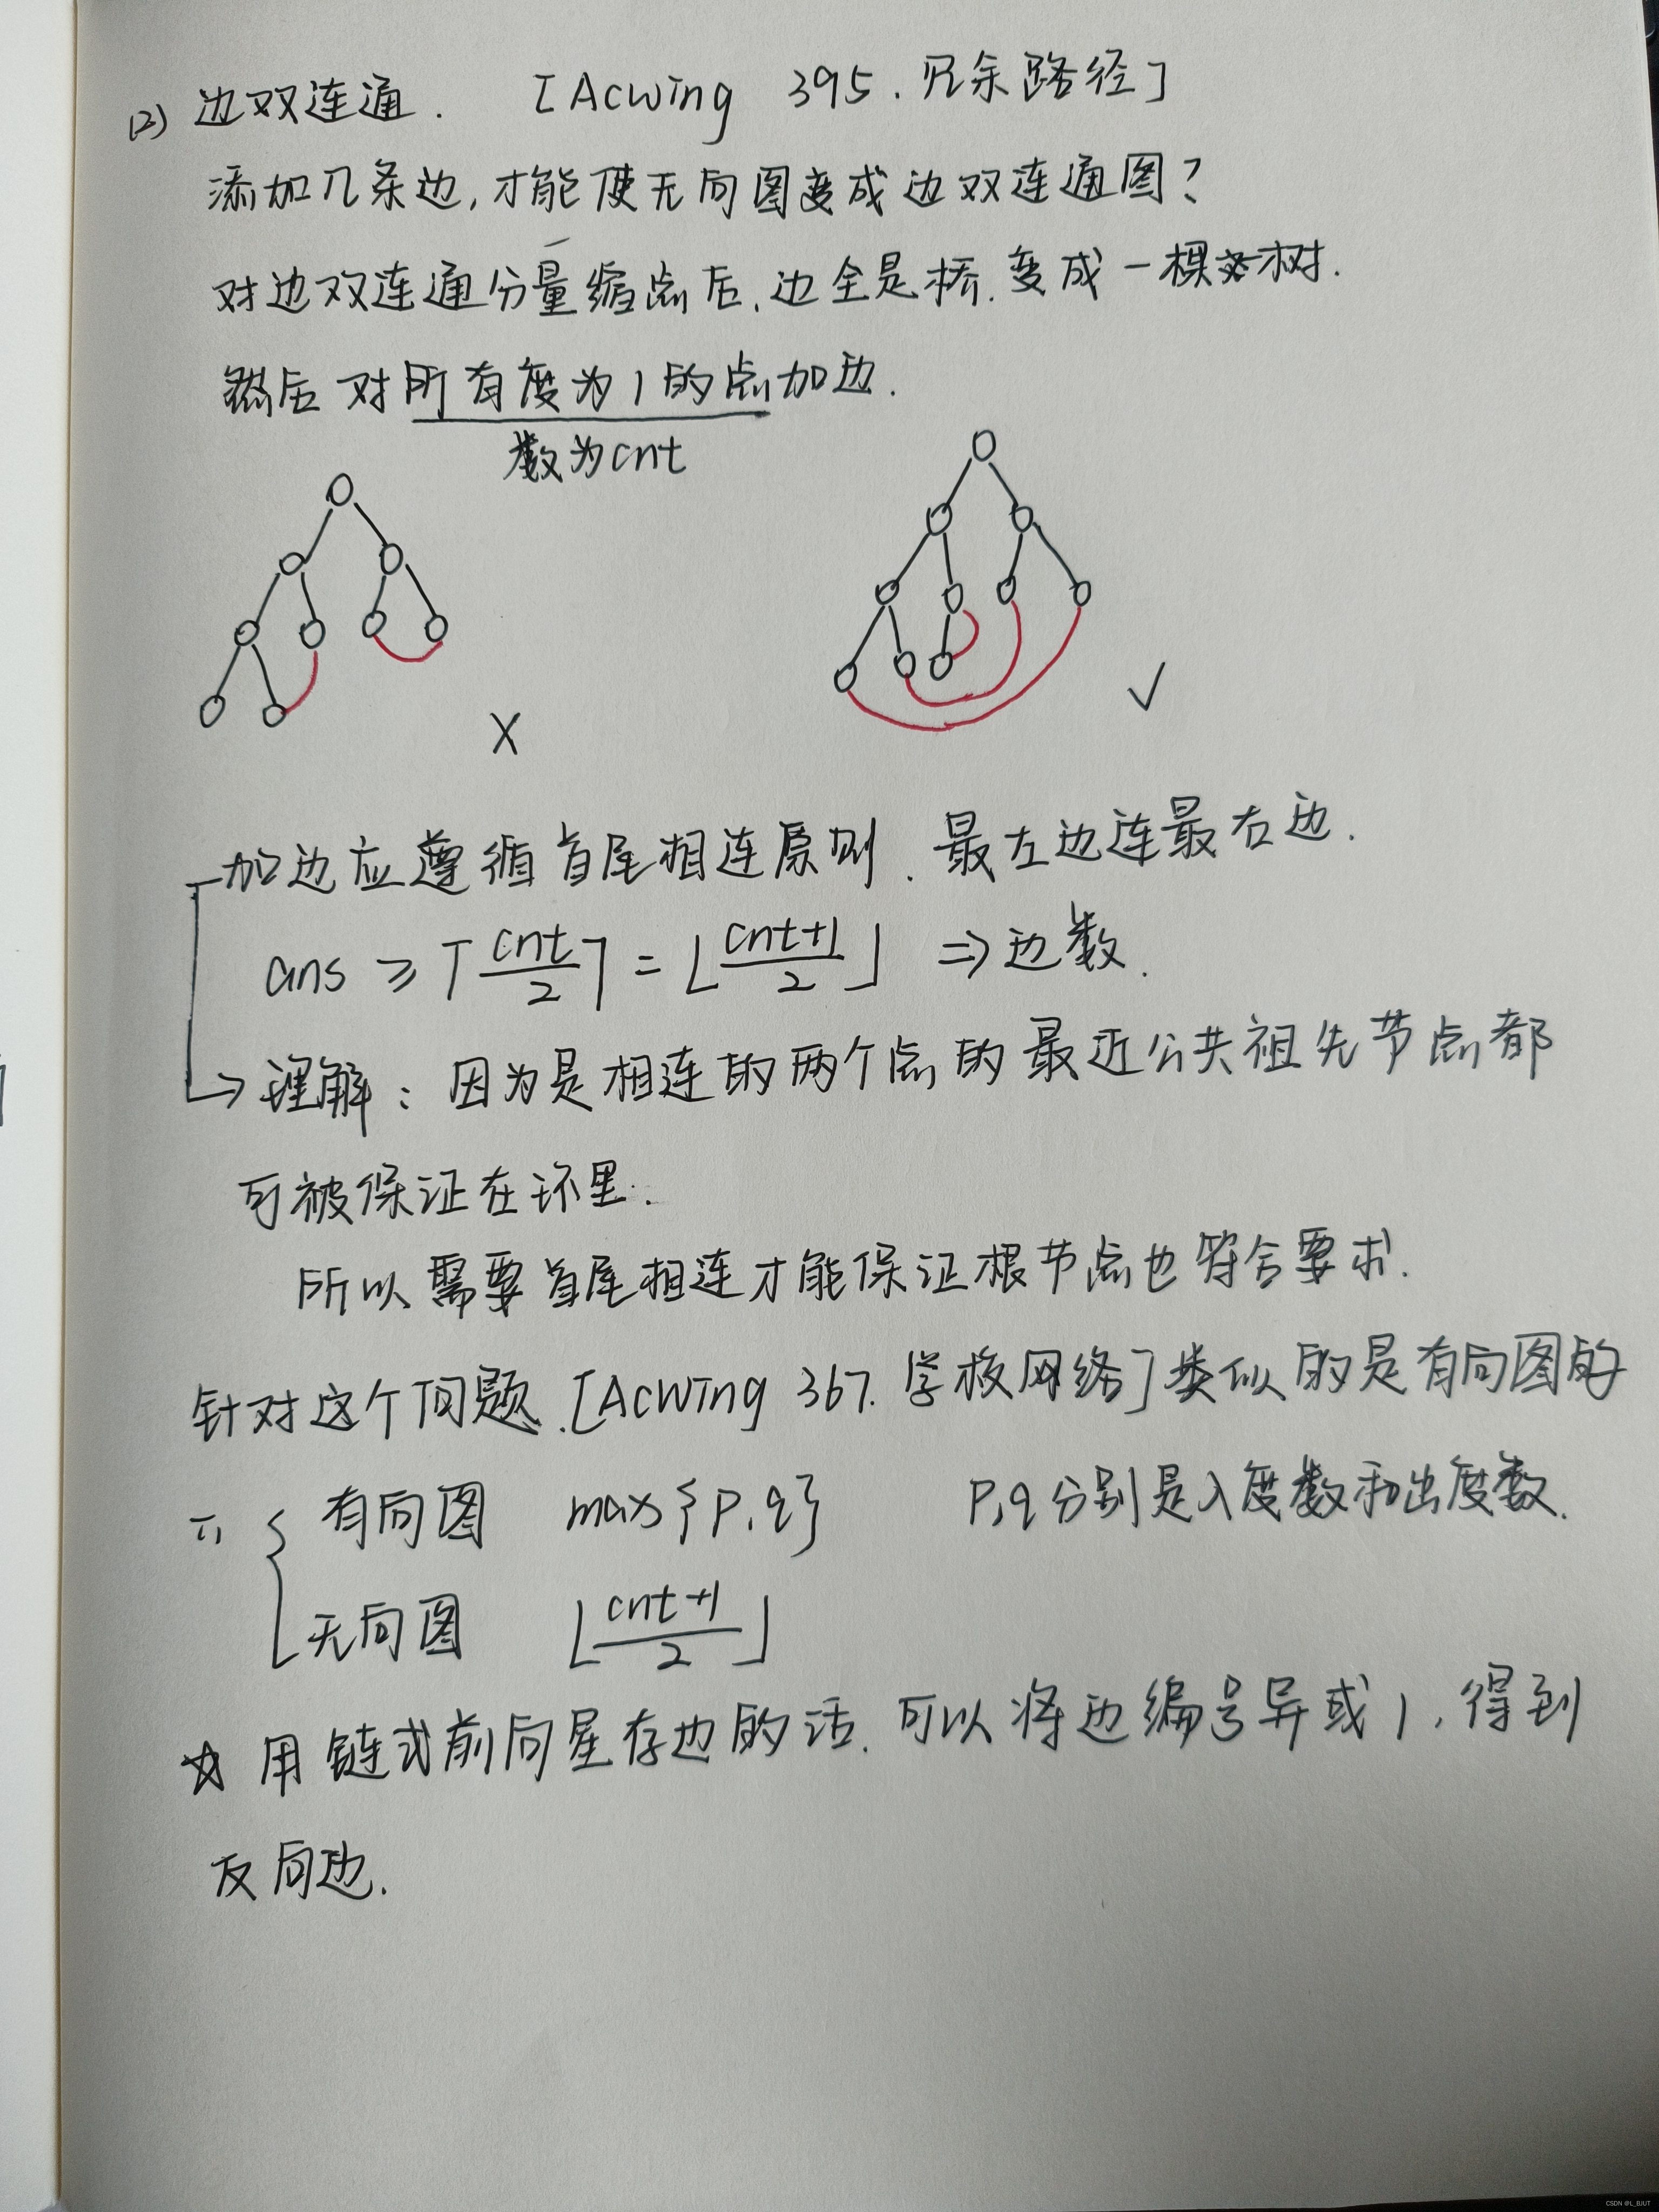 (2) 边双连通. [AcWing 395. 冗余路径]
添加几条边,才能使无向图变成边双连通图?
对边双连通分量缩点后,边全是桥.变成一棵树.
然后对所有度为1的点加边.
数为cnt
X
√
加边应遵循首尾相连原则.最左边连最右边.
ans ≥ ⌈cnt/2⌉ = ⌊(cnt+1)/2⌋ ⇒ 边数.
→ 理解: 因为是相连的两个点的最近公共祖先节点都
可被保证在环里.
所以需要首尾相连才能保证根节点也符合要求.
针对这个问题.[AcWing 367. 学校网络]类似的是有向图的
∴ { 有向图 max{p,q} P,q分别是入度数和出度数.
无向图 ⌊(cnt+1)/2⌋
☆ 用链式前向星存边的话.可以将边编号异或1,得到
反向边.
CSDN @L_BJUT